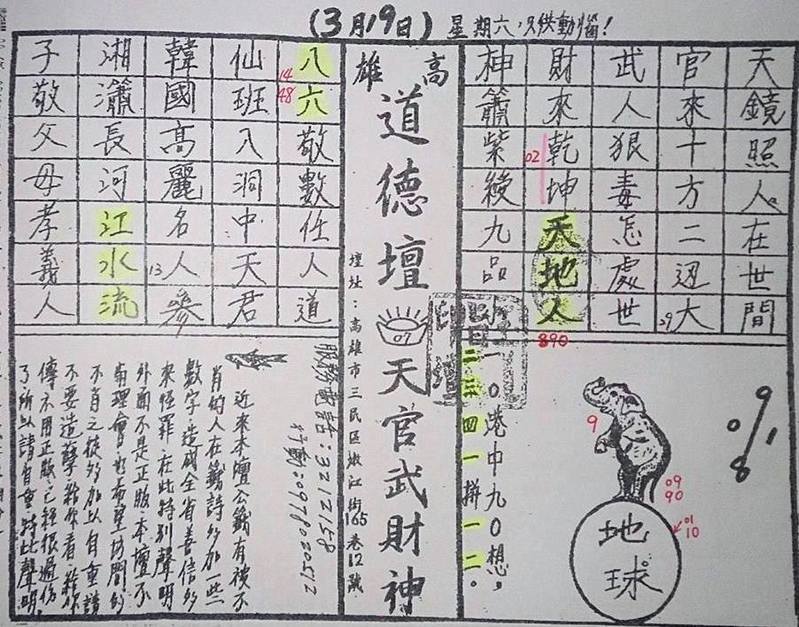 (3月19日) 星期六，只供動惱！
天鏡照人在世間
官來十方二迎大
29
武人狠毒怎處世
財來乾坤天地人
02
890
神簫紫綾九品
高雄
道德壇
07
天官武財神
壇址：高雄市三民區嫩江街165巷12號
八六敬數任人道
14
48
仙班入洞中天君
韓國高麗名人參
13
湘瀟長河江水流
子敬父母孝義人
一0港中九0想，
二三四一拼一二。
9
09
90
01
10
地球
9
0 1
8
服務電話：3212158
行動：0978020512
近來本壇公籤有被不
肖的人在籤詩多加一些
數字造成全省善信的
來怪罪在此特別聲明
外面不是正版本壇不
會理會也希望坊間的
不肖之徒多加以自重請
不要造孽
傳不用正版已經很過份
了所以請自重特此聲明．